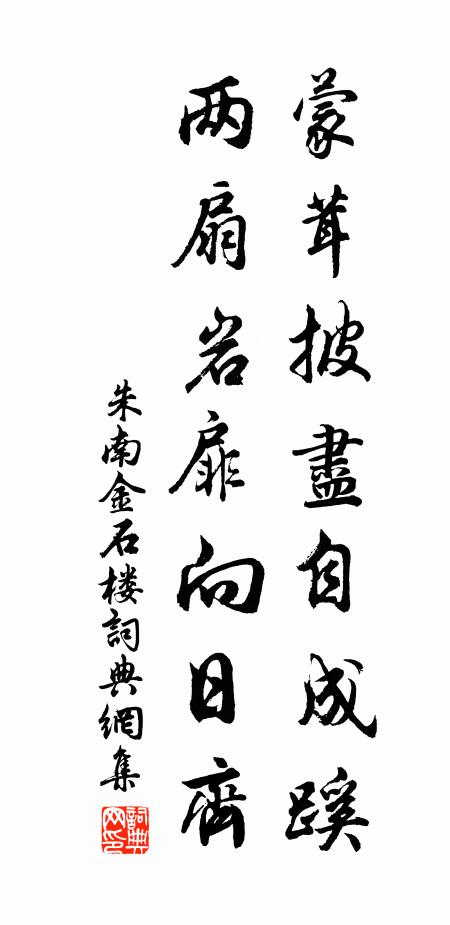 蒙茸披盡自成蹊
两扇岩扉向日齊
朱南金石楼詞典網集
詞典網印